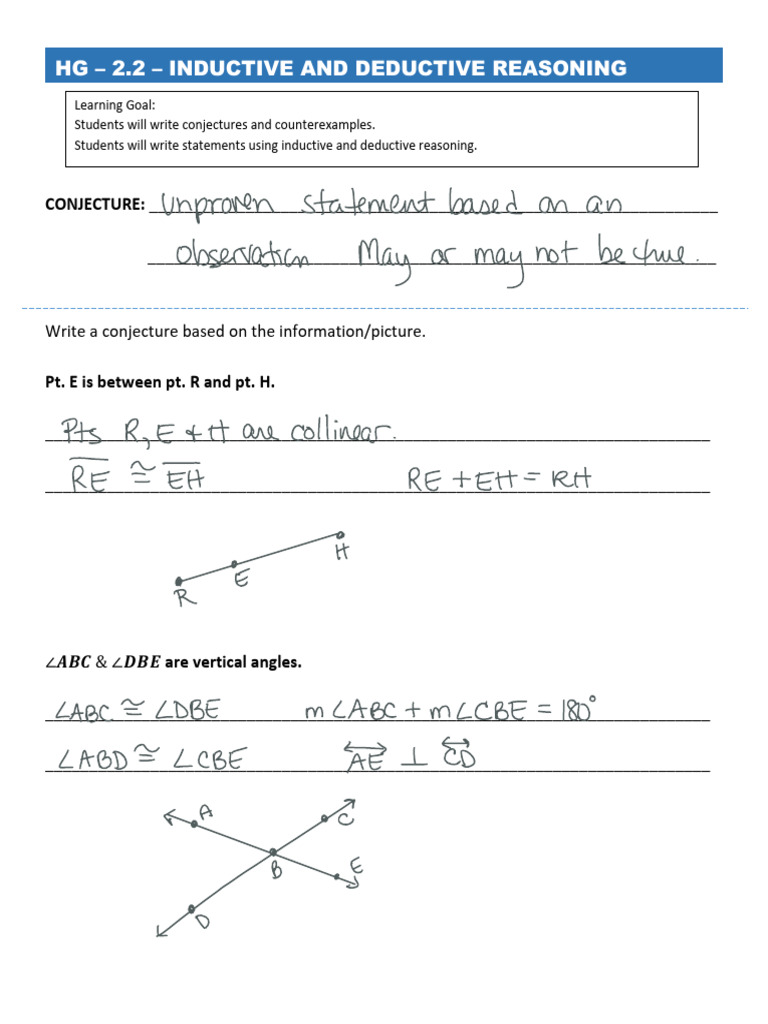 HG – 2.2 – INDUCTIVE AND DEDUCTIVE REASONING
Learning Goal:
Students will write conjectures and counterexamples.
Students will write statements using inductive and deductive reasoning.
CONJECTURE: Unproven statement based on an
observation May or may not be true.
Write a conjecture based on the information/picture.
Pt. E is between pt. R and pt. H.
Pts R, E & H are collinear.
R̅E̅ ≅ E̅H̅ RE + EH = RH
H
E
R
∠ABC & ∠DBE are vertical angles.
∠ABC ≅ ∠DBE m∠ABC + m∠CBE = 180°
∠ABD ≅ ∠CBE A⃡E⃡ ⊥ C⃡D⃡
A
C
B
E
D